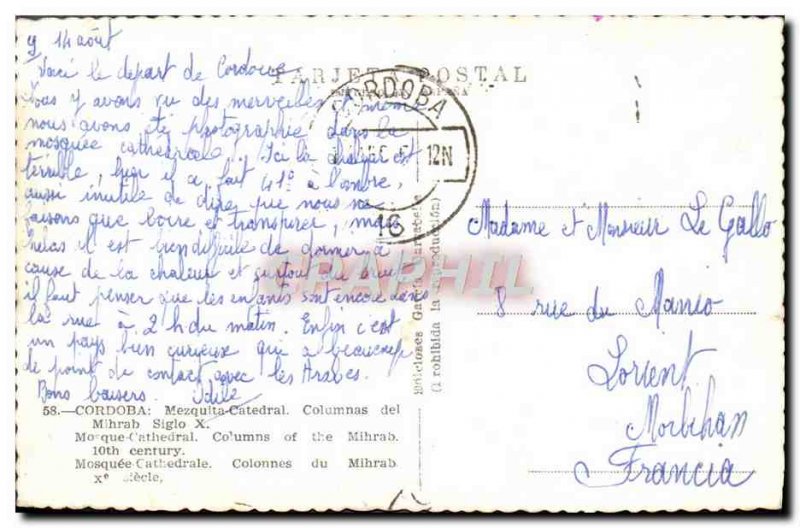 14 août
Voici le depart de Cordoue
Nous y avons vu des merveilles et même
nous avons été photographié dans la
mosquée cathedrale. Ici la chaleur est
terrible, hier il a fait 41° à l'ombre,
aussi inutile de dire que nous ne
faisons que boire et transpirer, mais
helas il est bien dificile de dormir à
cause de la chaleur et surtout du bruit
il faut penser que les enfants sont encore dans
la rue à 2 h du matin. Enfin c'est
un pays bien curieux qui a beaucoup
de point de contact avec les Arabes.
Bons baisers. Odile
58.—CORDOBA: Mezquita-Catedral. Columnas del
Mihrab Siglo X.
Mosque-Cathedral. Columns of the Mihrab.
10th century.
Mosquée-Cathedrale. Colonnes du Mihrab
Xe siècle,
TARJETA POSTAL
CORDOBA
12N
16
Ediciones Garcia Garrabella
(Prohibida la reproducción)
CPAPHIL
Madame et Monsieur Le Gallo
8 rue du Manio
Lorient
Morbihan
Francia